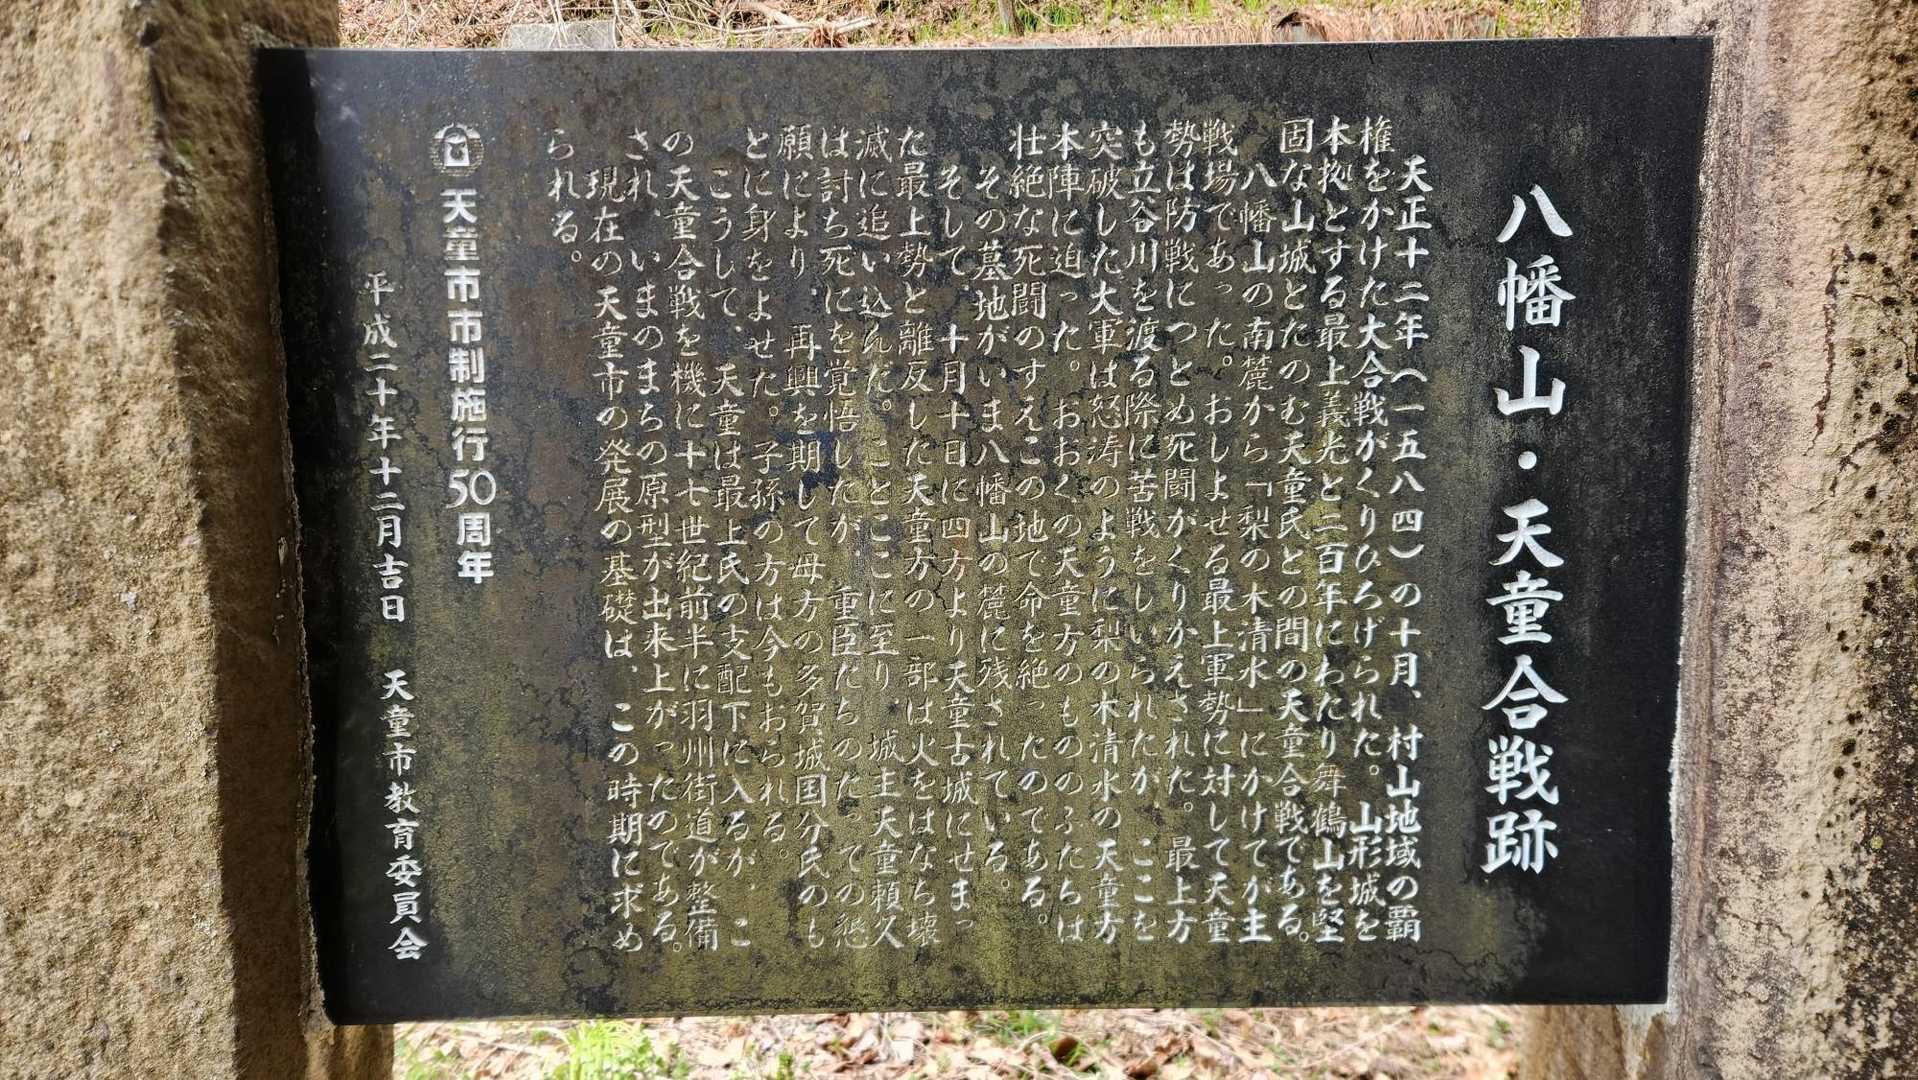 八幡山・天童合戦跡
天正十二年(一五八四)の十月、村山地域の覇
権をかけた大合戦がくりひろげられた。山形城を
本拠とする最上義光と二百年にわたり舞鶴山を堅
固な山城とたのむ天童氏との間の天童合戦である。
八幡山の南麓から「梨の木清水」にかけてが主
戦場であった。おしよせる最上軍勢に対して天童
勢は防戦につとめ死闘がくりかえされた。最上方
も立谷川を渡る際に苦戦をしいられたが、ここを
突破した大軍は怒涛のように梨の木清水の天童方
本陣に迫った。おおくの天童方のもののふたちは
壮絶な死闘のすえこの地で命を絶ったのである。
その墓地がいま八幡山の麓に残されている。
そして、十月十日に四方より天童古城にせまっ
た最上勢と離反した天童方の一部は火をはなち壊
滅に追い込んだ。ことここに至り、城主天童頼久
は討ち死にを覚悟したが、重臣たちのたっての懇
願により、再興を期して母方の多賀城国分氏のも
とに身をよせた。子孫の方は今もおられる。
こうして、天童は最上氏の支配下に入るが、こ
の天童合戦を機に十七世紀前半に羽州街道が整備
され、いまのまちの原型が出来上がったのである。
現在の天童市の発展の基礎は、この時期に求め
られる。
天童市市制施行50周年
平成二十年十二月吉日 天童市教育委員会